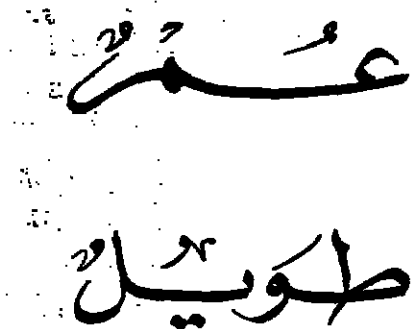 عُمْرٌ
طَوِيْلٌ